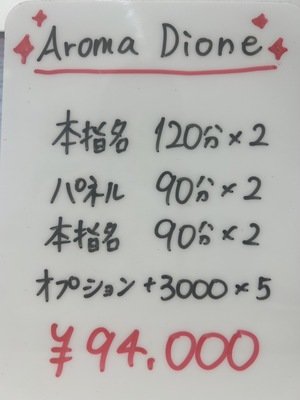 Aroma Dione
本指名 120分×2
パネル 90分×2
本指名 90分×2
オプション +3000×5
¥94,000